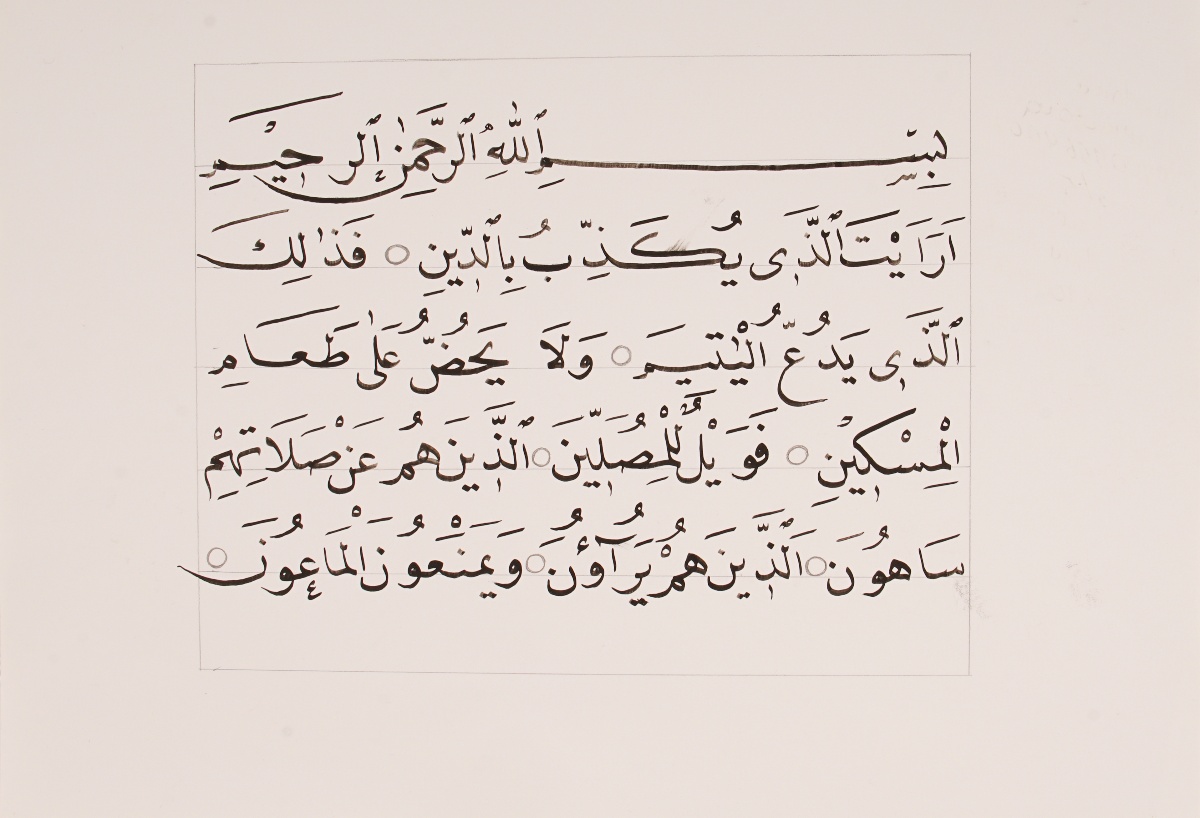 بِسْمِ ٱللّٰهِ ٱلرَّحْمٰنِ ٱلرَّحِيْمِ
اَرَاَيْتَ ٱلَّذِى يُكَذِّبُ بِٱلدِّينِ ○ فَذٰلِكَ
ٱلَّذِى يَدُعُّ الْيَتِيْمَ ○ وَلَا يَحُضُّ عَلٰى طَعَامِ
الْمِسْكِيْنِ ○ فَوَيْلٌ لِّلْمُصَلِّيْنَ ○ ٱلَّذِيْنَ هُمْ عَنْ صَلَاتِهِمْ
سَاهُوْنَ ○ ٱلَّذِيْنَ هُمْ يُرَآؤُنَ ○ وَيَمْنَعُوْنَ الْمَاعُوْنَ ○